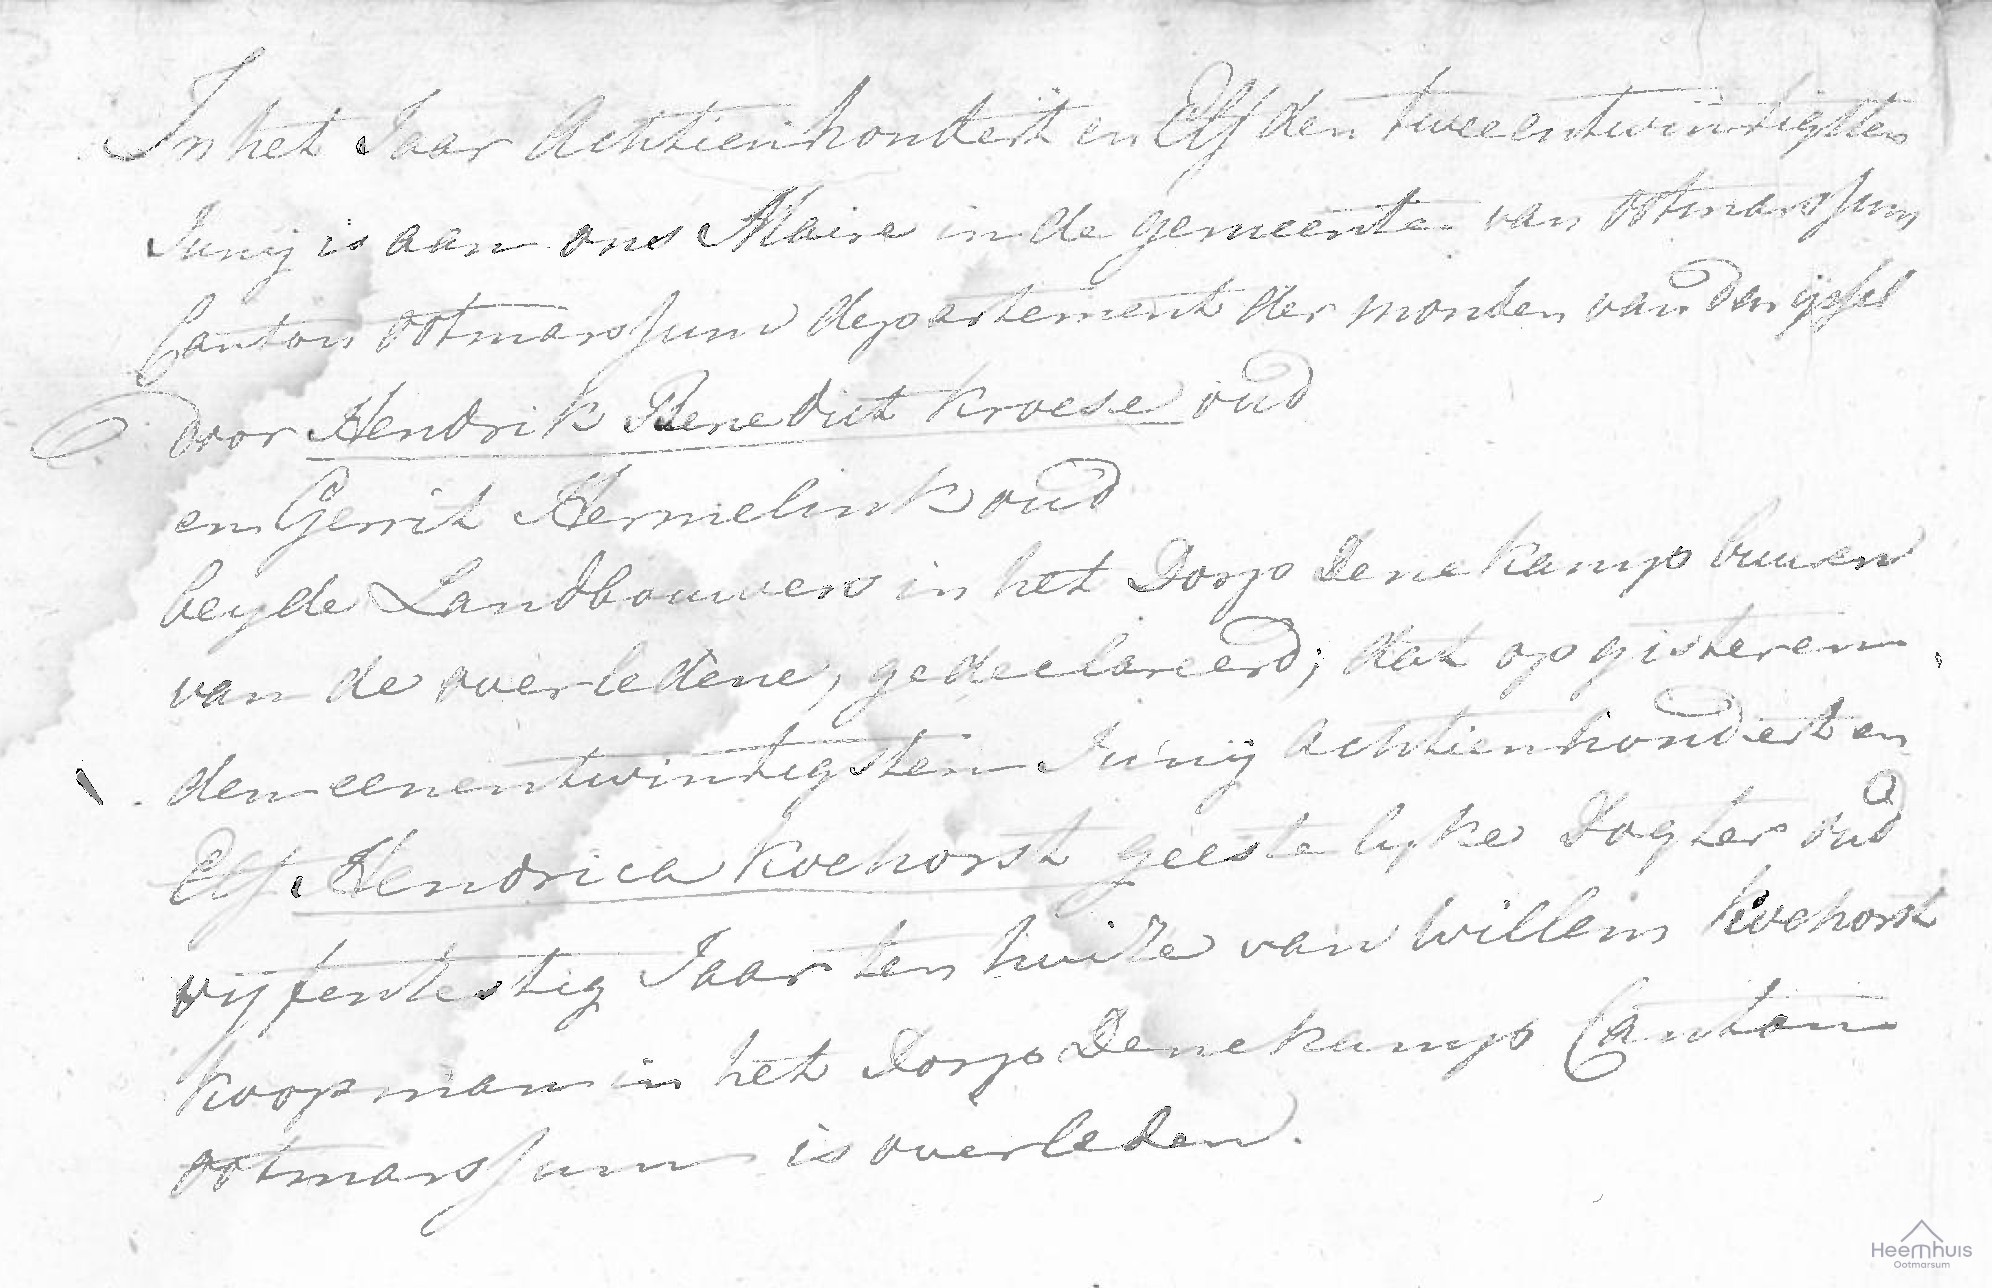 In het Jaar Achttienhondert en Elf den tweeentwintigsten
Junij is aan ons Maire in de gemeente van ootmarssum
Canton ootmarssum departement der monden van den ijssel
door Hendrik Benedict Kroese oud
en Gerrit Hermelink oud
beyde Landbouwers in het Dorp Denekamp buuren
van de overledene, gedeclareerd; dat op gisteren
den eenentwintigsten Junij Achtienhondert en
Elf Hendrica Koehorst geestelyke Dogter oud
vijfentestig Jaar ten huize van Willem Koehorst
koopman in het Dorp Denekamp Canton
ootmarssum is overleden.
Heemhuis
Ootmarsum